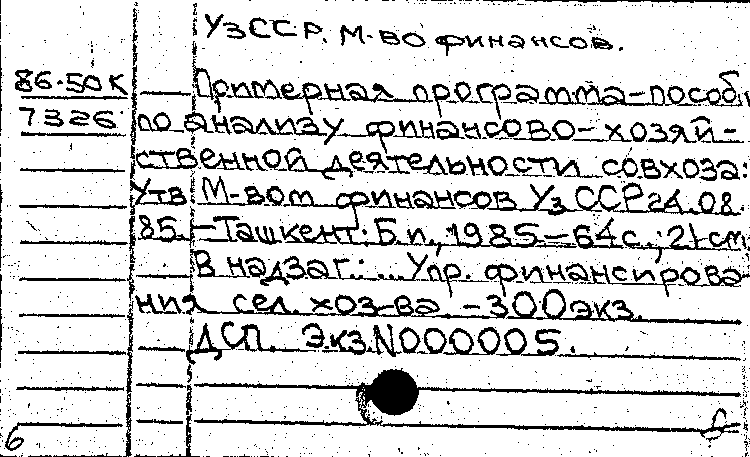 УзССР. М-во финансов.
86.50К Примерная программа-пособ.
7326 по анализу финансово-хозяй-
ственной деятельности совхоза:
Утв М-вом финансов УзССР 24.08.
85.-Ташкент: Б.и., 1985-64с.; 21см
В надзаг.: ...Упр. финансирова-
ния сел. хоз-ва. -300экз.
ДСП. Экз.N000005.
6